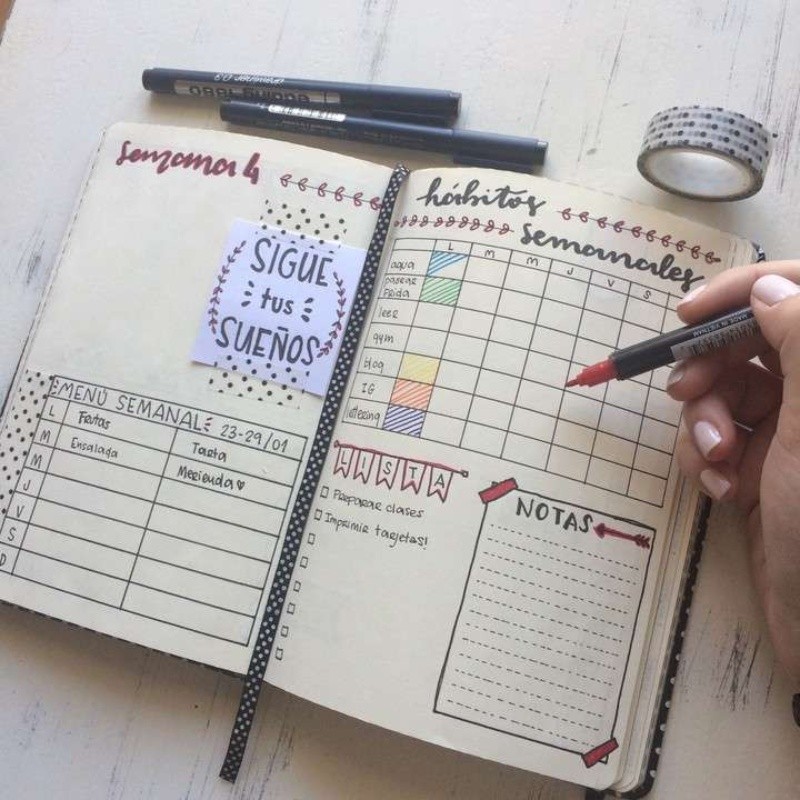 Semana 4
SIGUE
tus
SUEÑOS
MENÚ SEMANAL 23-29/01
L Frutas Tarta
M Ensalada Merienda
M
J
V
S
D
hábitos
semanales
L M M J V S
agua
pasear
Frida
leer
gym
blog
IG
lettering
LISTA
Preparar clases
Imprimir tarjetas!
NOTAS
MADE IN VIETNAM
edding 1880